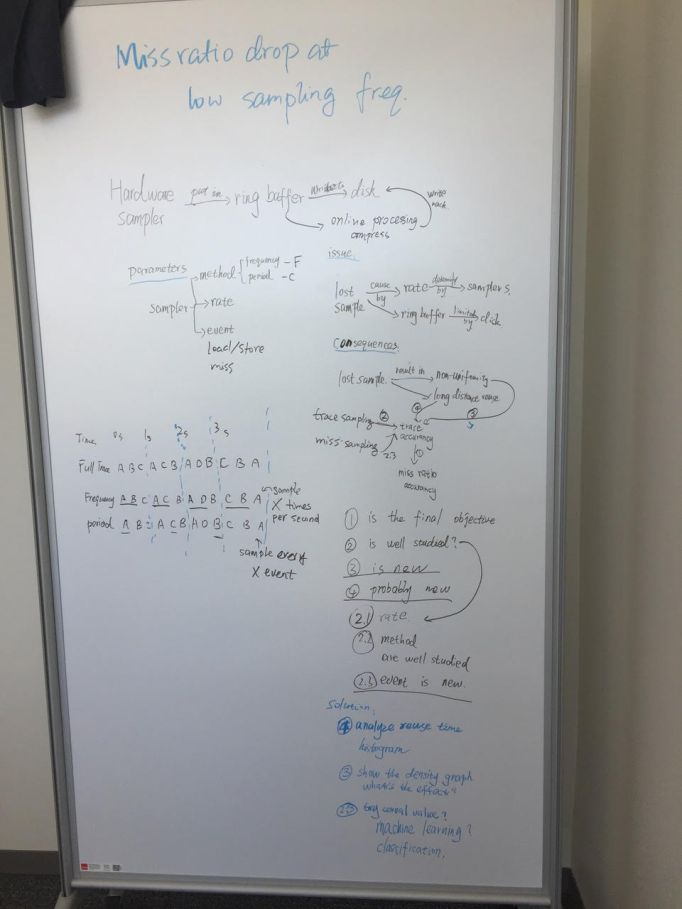 Miss ratio drop at
low sampling freq.
Hardware put in ring buffer disk
sampler
write
back
online processing
compress
parameters
method frequency - F
period - C
sampler rate
event
load/store
miss
issue.
lost cause by rate samplers.
sample ring buffer limited by disk
consequences
lost sample. result in non-uniformity
long distance reuse
④
③
trace sampling ② trace
accuracy
miss sampling 2.3
①
miss ratio
accuracy
Time 0s 1s 2s 3s
Full Trace A B C A C B A D B C B A
Frequency A B C A C B A D B C B A
period A B C A C B A D B C B A
sample
X times
per second
sample every
X event
① is the final objective
② is well studied?
③ is new
④ probably new
2.1 rate.
2.2 method
are well studied
2.3 event is new.
Solution.
④ analyze reuse time
histogram
③ show the density graph
what's the effect?
2.3 try value?
machine learning?
classification.